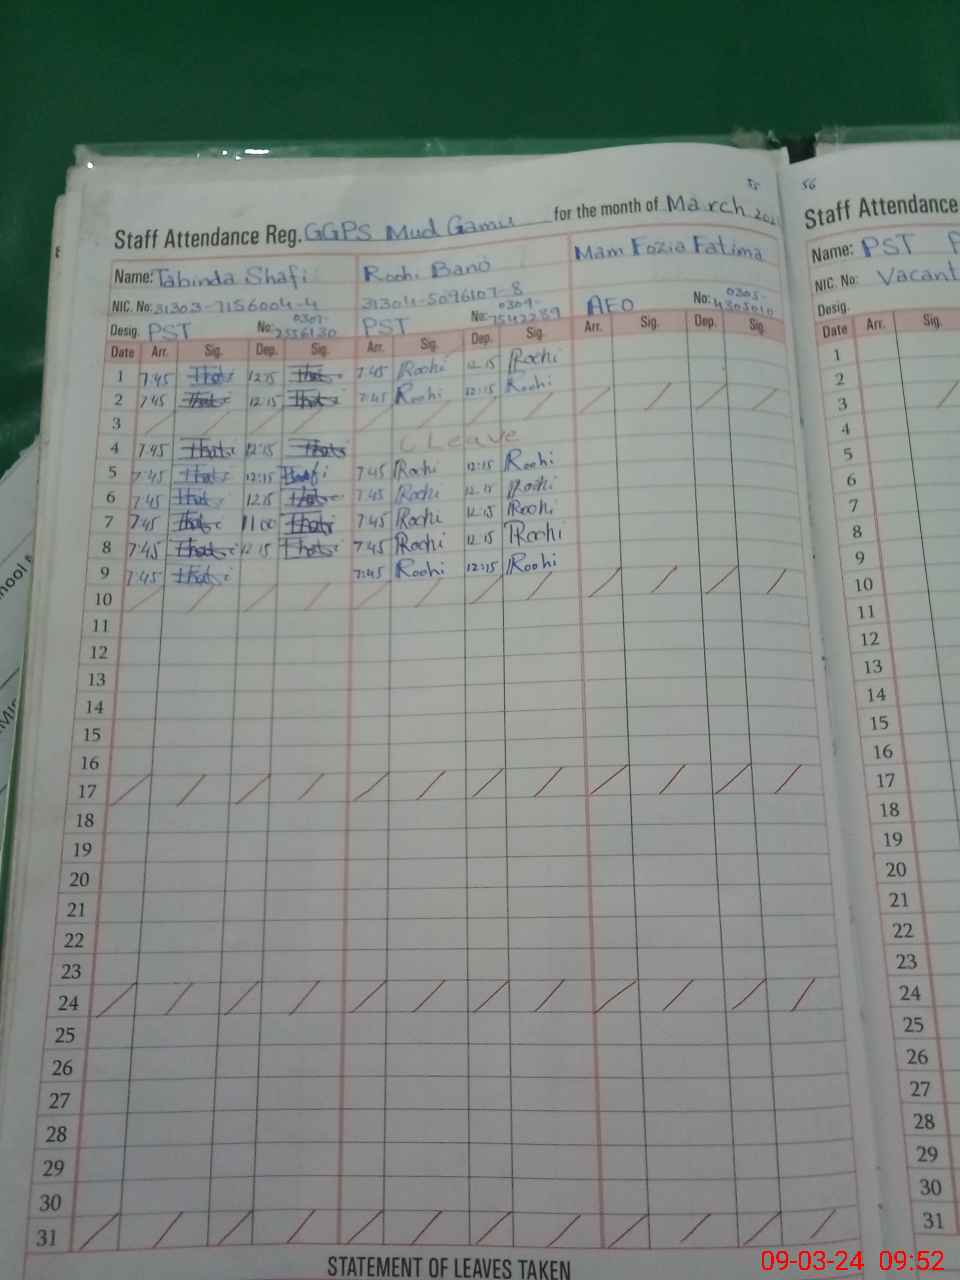 55
Staff Attendance Reg. GGPS Mud Gamu for the month of March 202
Name: Tabinda Shafi Roohi Bano Mam Fozia Fatima
NIC. No: 31303-7156004-4 31304-5096107-8
Desig. PST No: 0307-2556130 PST No: 0309-7542289 AEO No: 0305-4305010
Date Arr. Sig. Dep. Sig. Arr. Sig. Dep. Sig. Arr. Sig. Dep. Sig.
1 7:45 12:15 7:45 Roohi 12:15 Roohi
2 7:45 12:15 7:45 Roohi 12:15 Roohi
3
4 7:45 12:15 C Leave
5 7:45 12:15 7:45 Roohi 12:15 Roohi
6 7:45 12:15 7:45 Roohi 12:15 Roohi
7 7:45 11:00 7:45 Roohi 12:15 Roohi
8 7:45 12:15 7:45 Roohi 12:15 Roohi
9 7:45 7:45 Roohi 12:15 Roohi
10
11
12
13
14
15
16
17
18
19
20
21
22
23
24
25
26
27
28
29
30
31
STATEMENT OF LEAVES TAKEN
56
Staff Attendance
Name: PST
NIC. No: Vacant
Desig.
Date Arr. Sig.
1
2
3
4
5
6
7
8
9
10
11
12
13
14
15
16
17
18
19
20
21
22
23
24
25
26
27
28
29
30
31
09-03-24 09:52